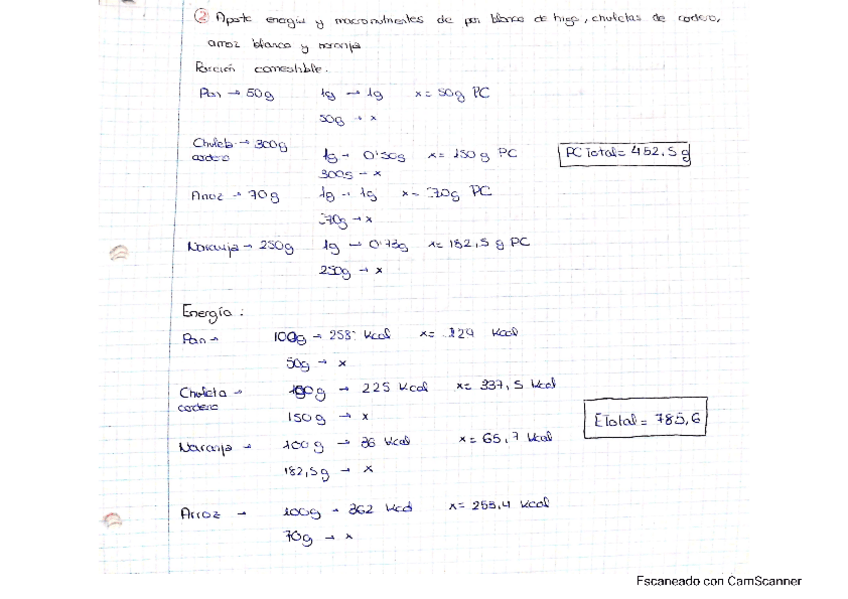 ② Aporte energía y macronutrientes de pan blanco de trigo, chuletas de cordero,
arroz blanco y naranja
Porción comestible.
Pan → 50g 1g → 1g x = 50g PC
50g → x
Chuleta → 300g
cordero 1g → 0'50g x = 150 g PC PC Total = 452,5 g
300g → x
Arroz → 70g 1g → 1g x = 70g PC
70g → x
Naranja → 250g 1g → 0'73g x = 182,5 g PC
250g → x
Energía:
Pan → 100g → 258 Kcal x = 124 Kcal
50g → x
Chuleta → 100g → 225 Kcal x = 337,5 Kcal
cordero
150g → x ETotal = 785,6
Naranja → 100g → 36 Kcal x = 65,7 Kcal
182,5g → x
Arroz → 100g → 362 Kcal x = 255,4 Kcal
70g → x
Escaneado con CamScanner